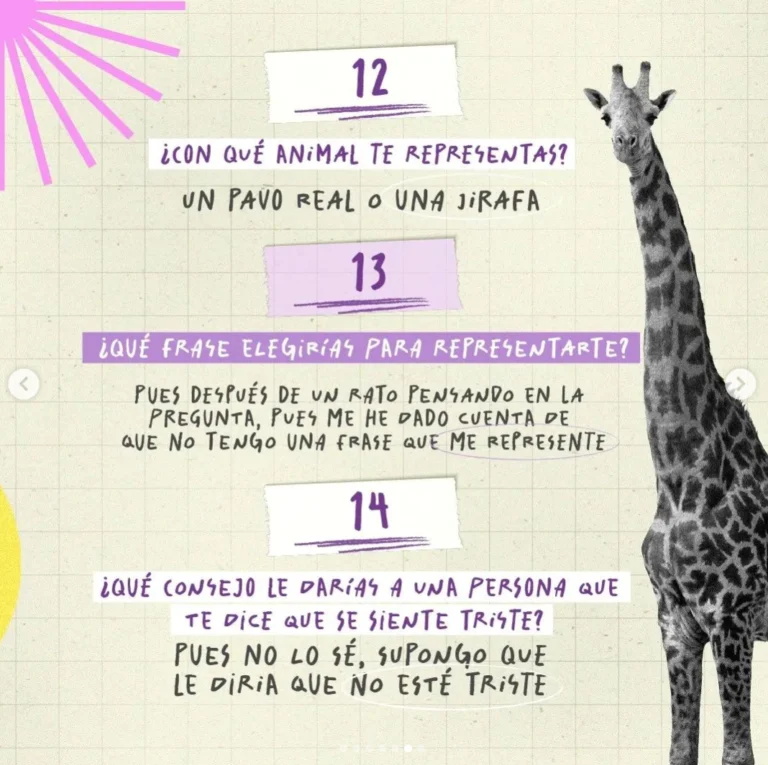 12
¿CON QUÉ ANIMAL TE REPRESENTAS?
UN PAVO REAL O UNA JIRAFA
13
¿QUÉ FRASE ELEGIRÍAS PARA REPRESENTARTE?
PUES DESPUÉS DE UN RATO PENSANDO EN LA
PREGUNTA, PUES ME HE DADO CUENTA DE
QUE NO TENGO UNA FRASE QUE ME REPRESENTE
14
¿QUÉ CONSEJO LE DARÍAS A UNA PERSONA QUE
TE DICE QUE SE SIENTE TRISTE?
PUES NO LO SÉ, SUPONGO QUE
LE DIRIA QUE NO ESTÉ TRISTE